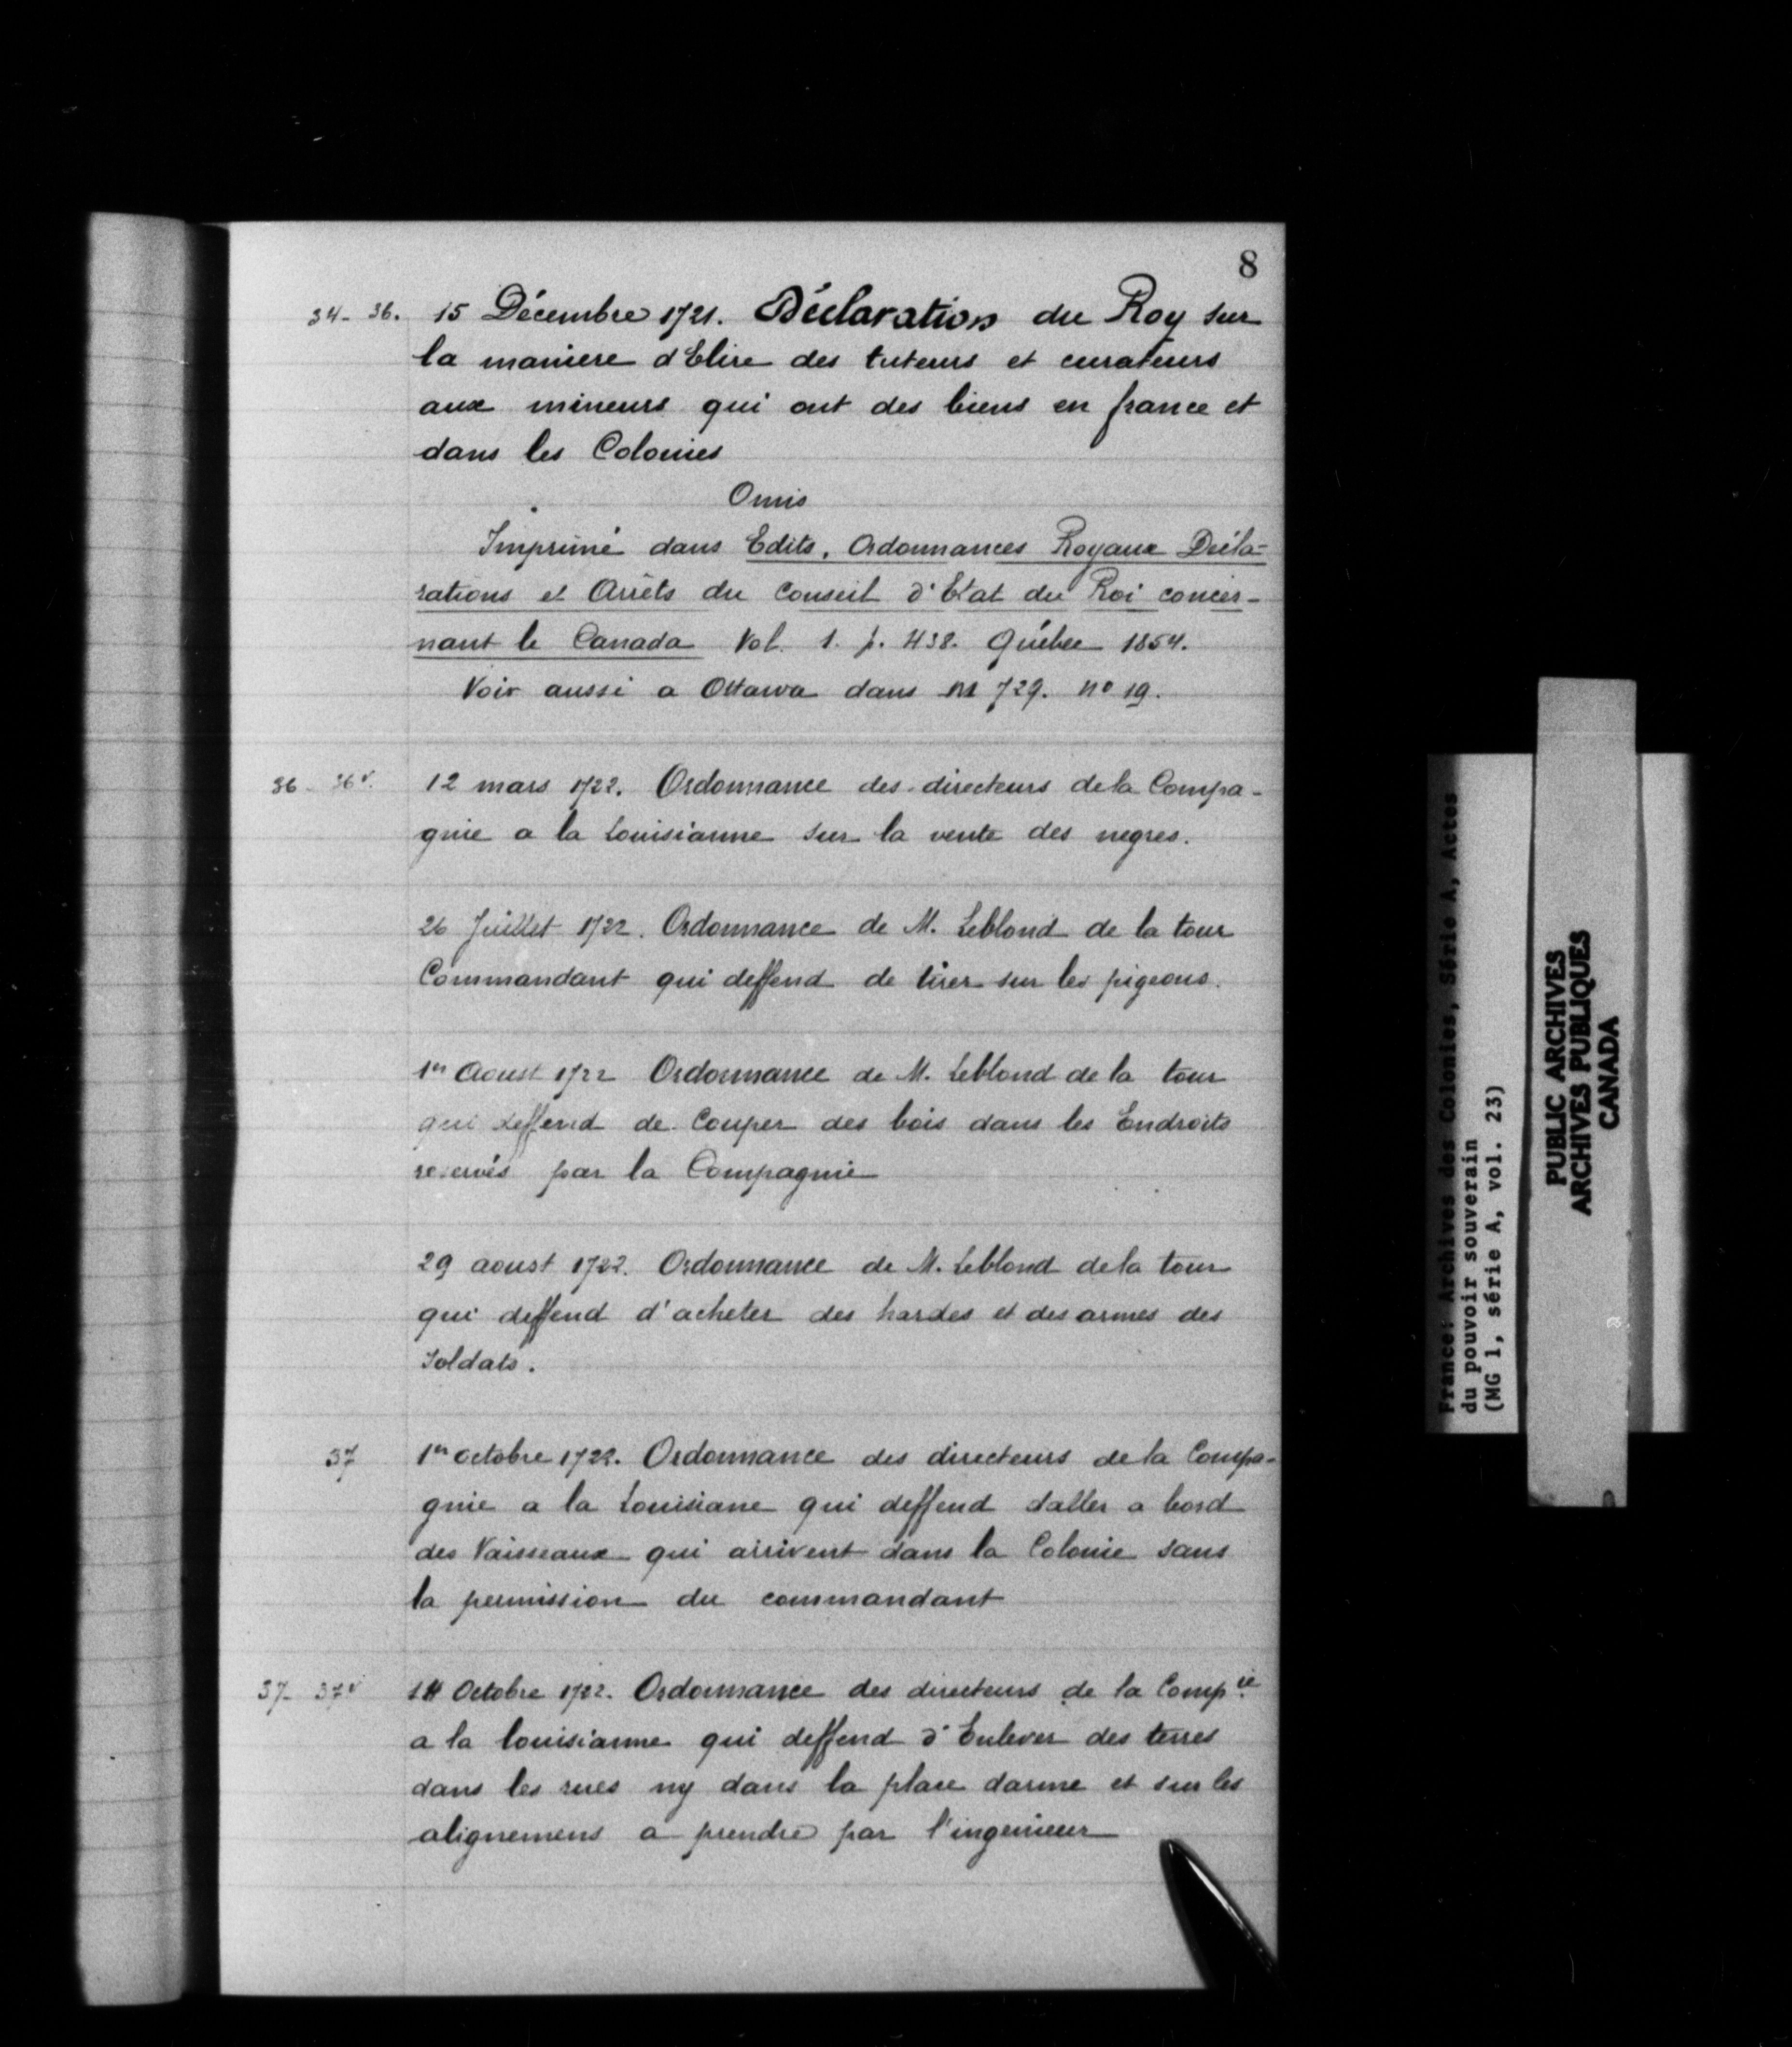 8
34-36. 15 Décembre 1721. Déclaration du Roy sur
la maniere d'Elire des tuteurs et curateurs
aux mineurs qui ont des biens en france et
dans les Colonies
Omis
Imprimé dans Edits, Ordonnances Royaux Décla-
rations et Arrêts du Conseil d'Etat du Roi concer-
nant le Canada Vol. 1. p. 438. Québec 1854.
Voir aussi a Ottawa dans M 729. no 19.
36-36v. 12 mars 1722. Ordonnance des directeurs de la Compa-
gnie a la Louisianne sur la vente des negres.
26 Juillet 1722. Ordonnance de M. Leblond de la tour
Commandant qui deffend de tirer sur les pigeons.
1er Aoust 1722 Ordonnance de M. Leblond de la tour
qui deffend de Couper des bois dans les Endroits
reservés par la Compagnie
29 aoust 1722. Ordonnance de M. Leblond de la tour
qui deffend d'acheter des hardes et des armes des
Soldats.
37 1er octobre 1722. Ordonnance des directeurs de la Compa-
gnie a la Louisiane qui deffend daller a bord
des Vaisseaux qui arrivent dans la Colonie sans
la permission du commandant
37-37v Octobre 1722. Ordonnance des directeurs de la Compie
a la louisianne qui deffend d'Enlever des terres
dans les rues ny dans la place darme et sur les
alignemens a prendre par l'ingenieur
France: Archives des Colonies, Série A, Actes
du pouvoir souverain
(MG 1, série A, vol. 23)
PUBLIC ARCHIVES
ARCHIVES PUBLIQUES
CANADA